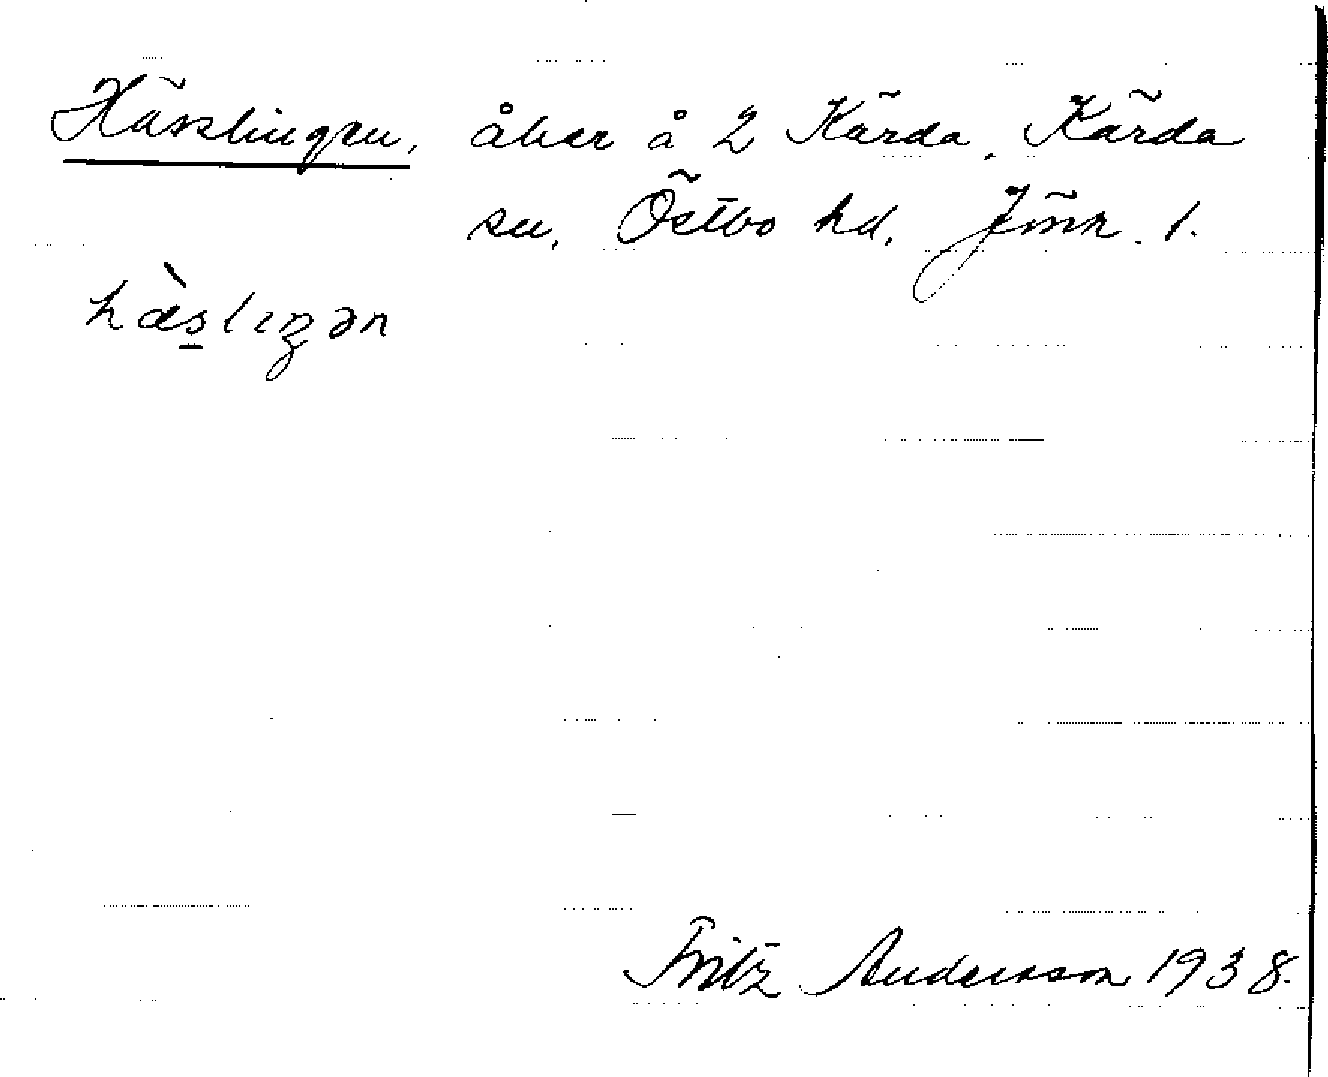 Hässlingen, åker å 2 Kärda, Kärda
sn, Östbo hd. Jönk. l.
hàslıŋən
Fritz Anderson 1938.